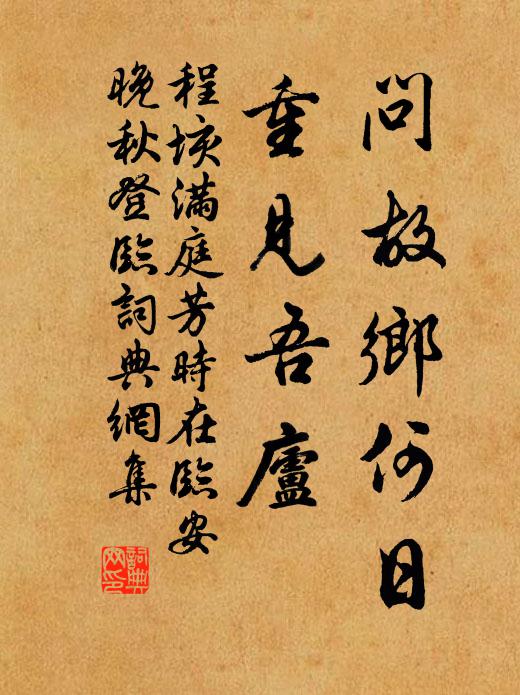 問故鄉何日
重見吾廬
程垓滿庭芳時在臨安
晚秋登臨詞典網集
詞典網印